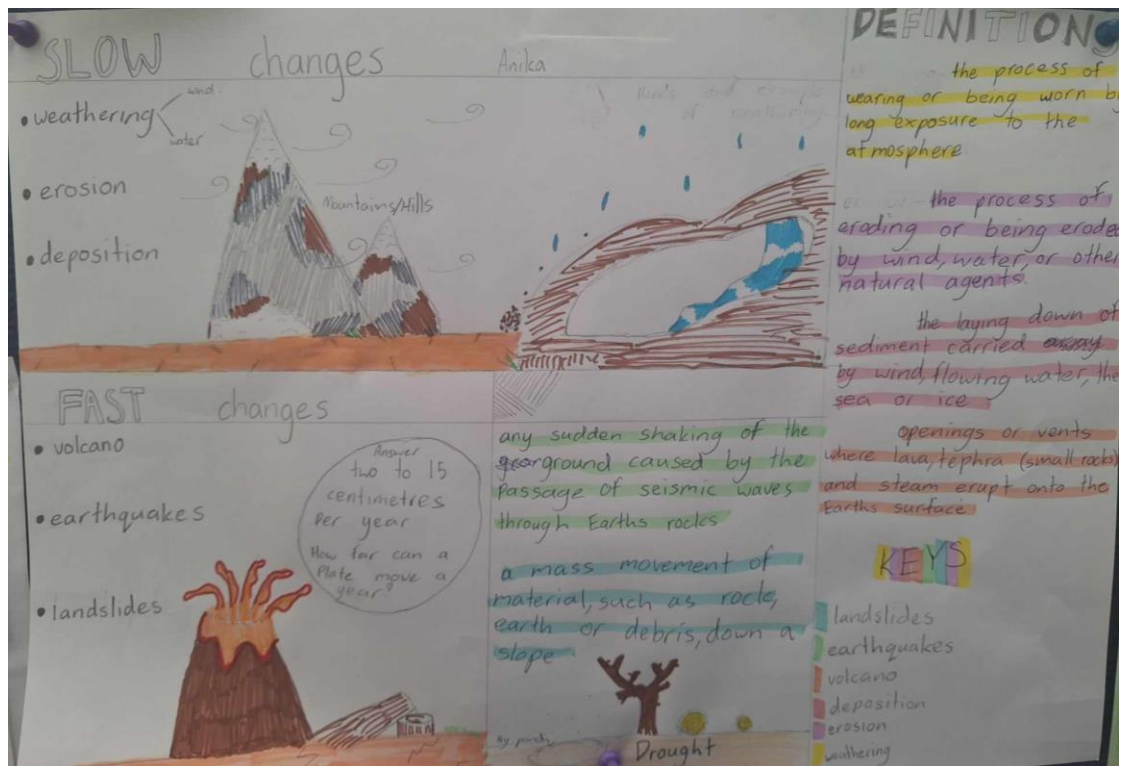 SLOW changes
Anika
• weathering
wind
water
• erosion
• deposition
Mountains/Hills
of weathering
FAST changes
• volcano
• earthquakes
• landslides
Answer
two to 15
centimetres
Per year
How far can a
Plate move a
year?
any sudden shaking of the
ground caused by the
passage of seismic waves
through Earths rocks
a mass movement of
material, such as rock,
earth or debris, down a
slope
Drought
DEFINITIONS
the process of
wearing or being worn by
long exposure to the
atmosphere
the process of
eroding or being eroded
by wind, water, or other
natural agents.
the laying down of
sediment carried away
by wind, flowing water, the
sea or ice
openings or vents
where lava, tephra (small rocks)
and steam erupt onto the
Earths surface
KEYS
landslides
earthquakes
volcano
deposition
erosion
weathering